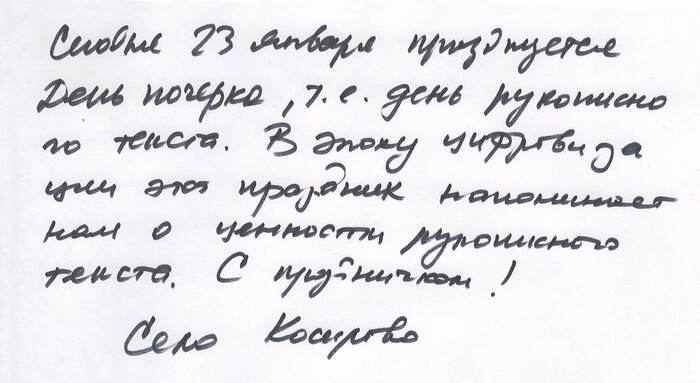 23 января празднуется
День почерка, т.е. день рукописно
го текста. В эпоху цифровиза
ции этот праздник напоминает
нам о ценности рукописного
текста. С праздничком!
Село